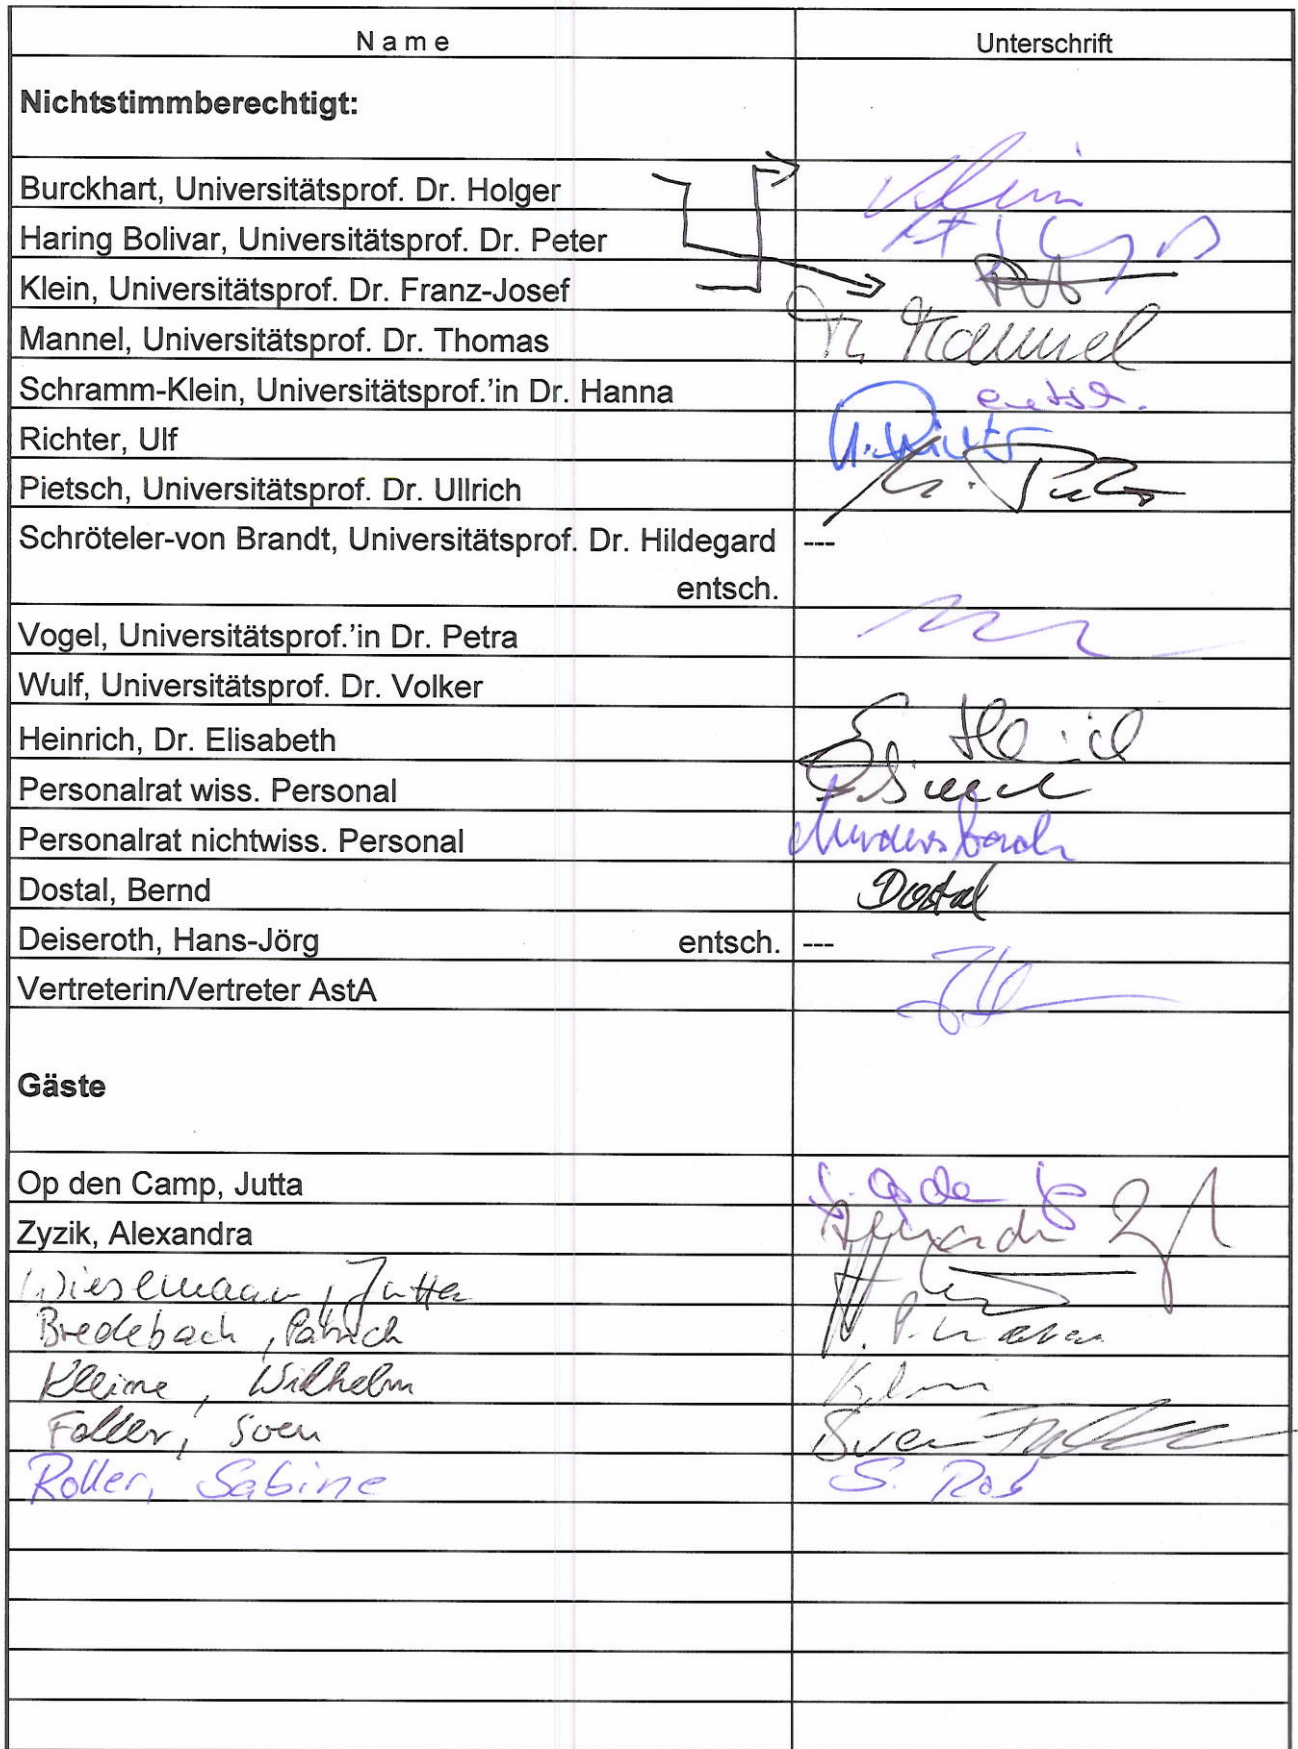 Name Unterschrift
Nichtstimmberechtigt:
Burckhart, Universitätsprof. Dr. Holger Klein
Haring Bolivar, Universitätsprof. Dr. Peter
Klein, Universitätsprof. Dr. Franz-Josef
Mannel, Universitätsprof. Dr. Thomas Th. Mannel
Schramm-Klein, Universitätsprof.'in Dr. Hanna entsch.
Richter, Ulf U. Richter
Pietsch, Universitätsprof. Dr. Ullrich
Schröteler-von Brandt, Universitätsprof. Dr. Hildegard ---
entsch.
Vogel, Universitätsprof.'in Dr. Petra
Wulf, Universitätsprof. Dr. Volker
Heinrich, Dr. Elisabeth
Personalrat wiss. Personal
Personalrat nichtwiss. Personal
Dostal, Bernd Dostal
Deiseroth, Hans-Jörg entsch. ---
Vertreterin/Vertreter AstA
Gäste
Op den Camp, Jutta
Zyzik, Alexandra
Wiesemann, Jutta
Bredebach, Patrick
Kleine, Wilhelm
Foller, Sven Sven
Roller, Sabine S.